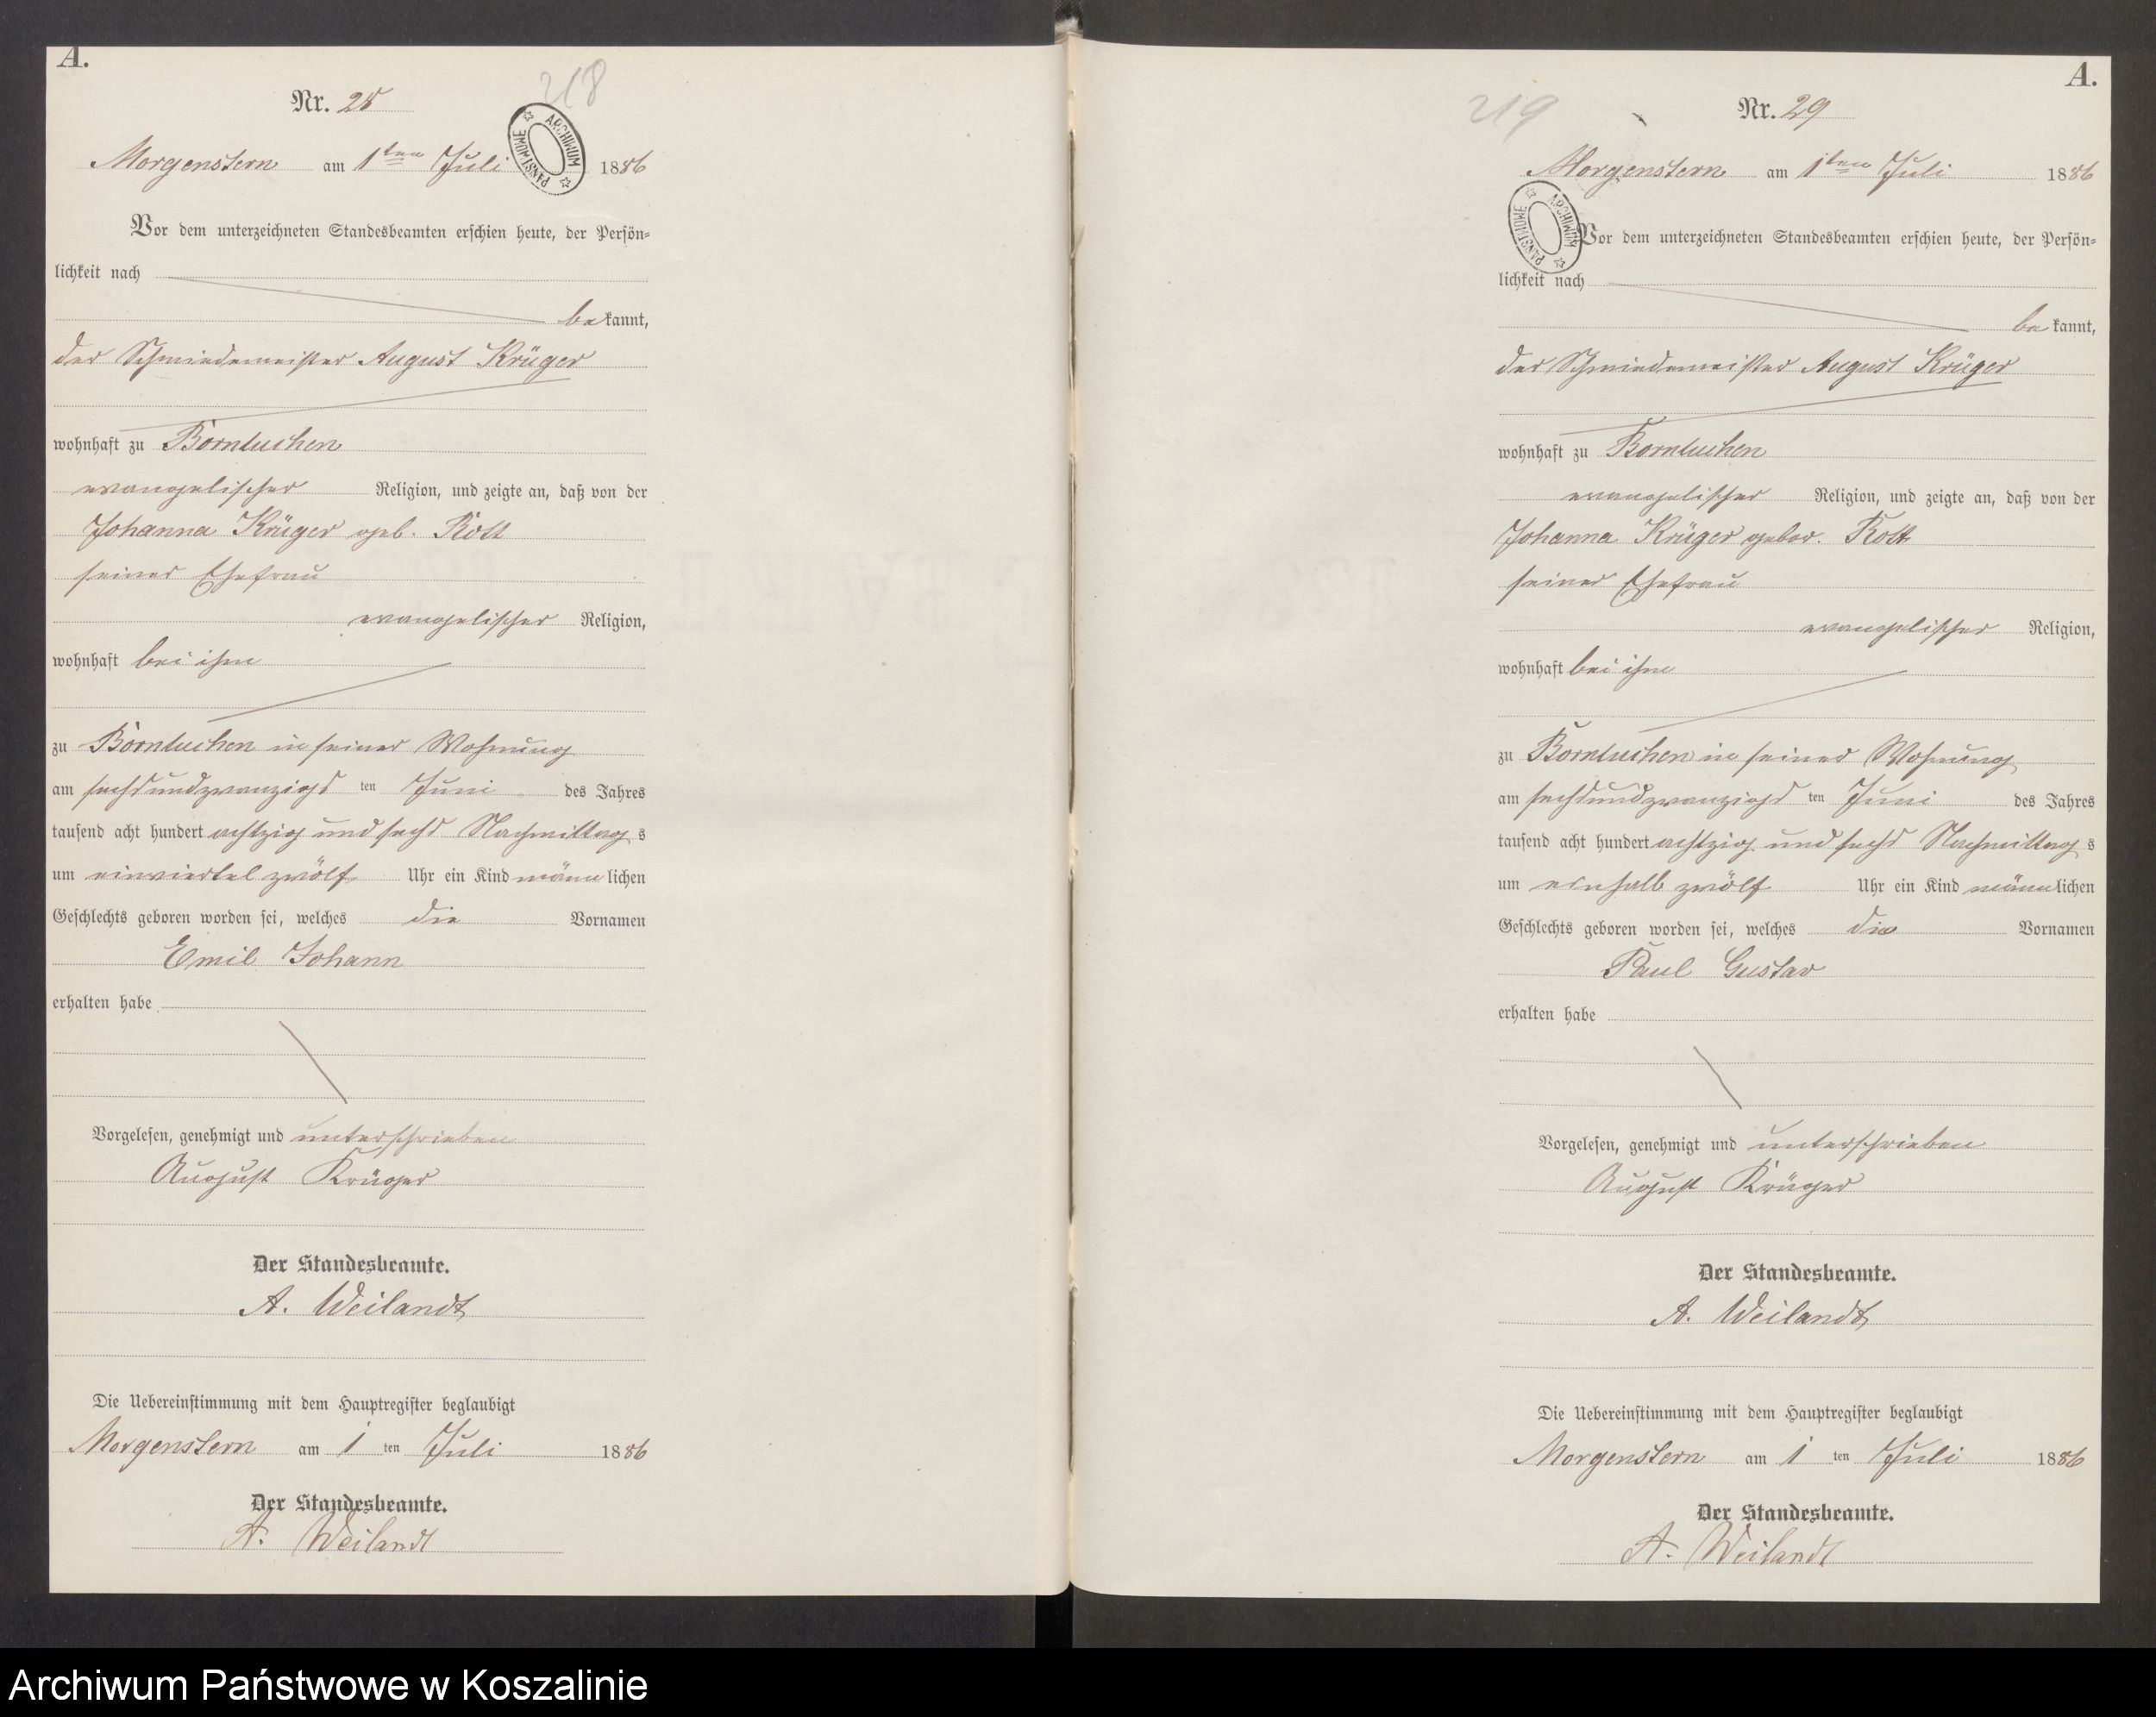 A.
218
Nr. 28
ARCHIWUM PAŃSTWOWE
Morgenstern am 1ten Juli 1886
Vor dem unterzeichneten Standesbeamten erschien heute, der Persön-
lichkeit nach
bekannt,
der Schmiedemeister August Krüger
wohnhaft zu Borntuchen
evangelischer Religion, und zeigte an, daß von der
Johanna Krüger geb. Rott
seiner Ehefrau
evangelischer Religion,
wohnhaft bei ihm
zu Borntuchen in seiner Wohnung
am sechsundzwanzigs ten Juni des Jahres
tausend acht hundert achtzig und sechs Nachmittag s
um einviertel zwölf Uhr ein Kind männlichen
Geschlechts geboren worden sei, welches die Vornamen
Emil Johann
erhalten habe
Vorgelesen, genehmigt und unterschrieben
August Krüger
Der Standesbeamte.
A. Weilandt
Die Uebereinstimmung mit dem Hauptregister beglaubigt
Morgenstern am 1 ten Juli 1886
Der Standesbeamte.
A. Weilandt
A.
219
Nr. 29
Morgenstern am 1ten Juli 1886
ARCHIWUM PAŃSTWOWE
Vor dem unterzeichneten Standesbeamten erschien heute, der Persön-
lichkeit nach
bekannt,
der Schmiedemeister August Krüger
wohnhaft zu Borntuchen
evangelischer Religion, und zeigte an, daß von der
Johanna Krüger gebor. Rott
seiner Ehefrau
evangelischer Religion,
wohnhaft bei ihm
zu Borntuchen in seiner Wohnung
am sechsundzwanzigs ten Juni des Jahres
tausend acht hundert achtzig und sechs Nachmittag s
um einhalb zwölf Uhr ein Kind männlichen
Geschlechts geboren worden sei, welches die Vornamen
Paul Gustav
erhalten habe
Vorgelesen, genehmigt und unterschrieben
August Krüger
Der Standesbeamte.
A. Weilandt
Die Uebereinstimmung mit dem Hauptregister beglaubigt
Morgenstern am 1 ten Juli 1886
Der Standesbeamte.
A. Weilandt
Archiwum Państwowe w Koszalinie